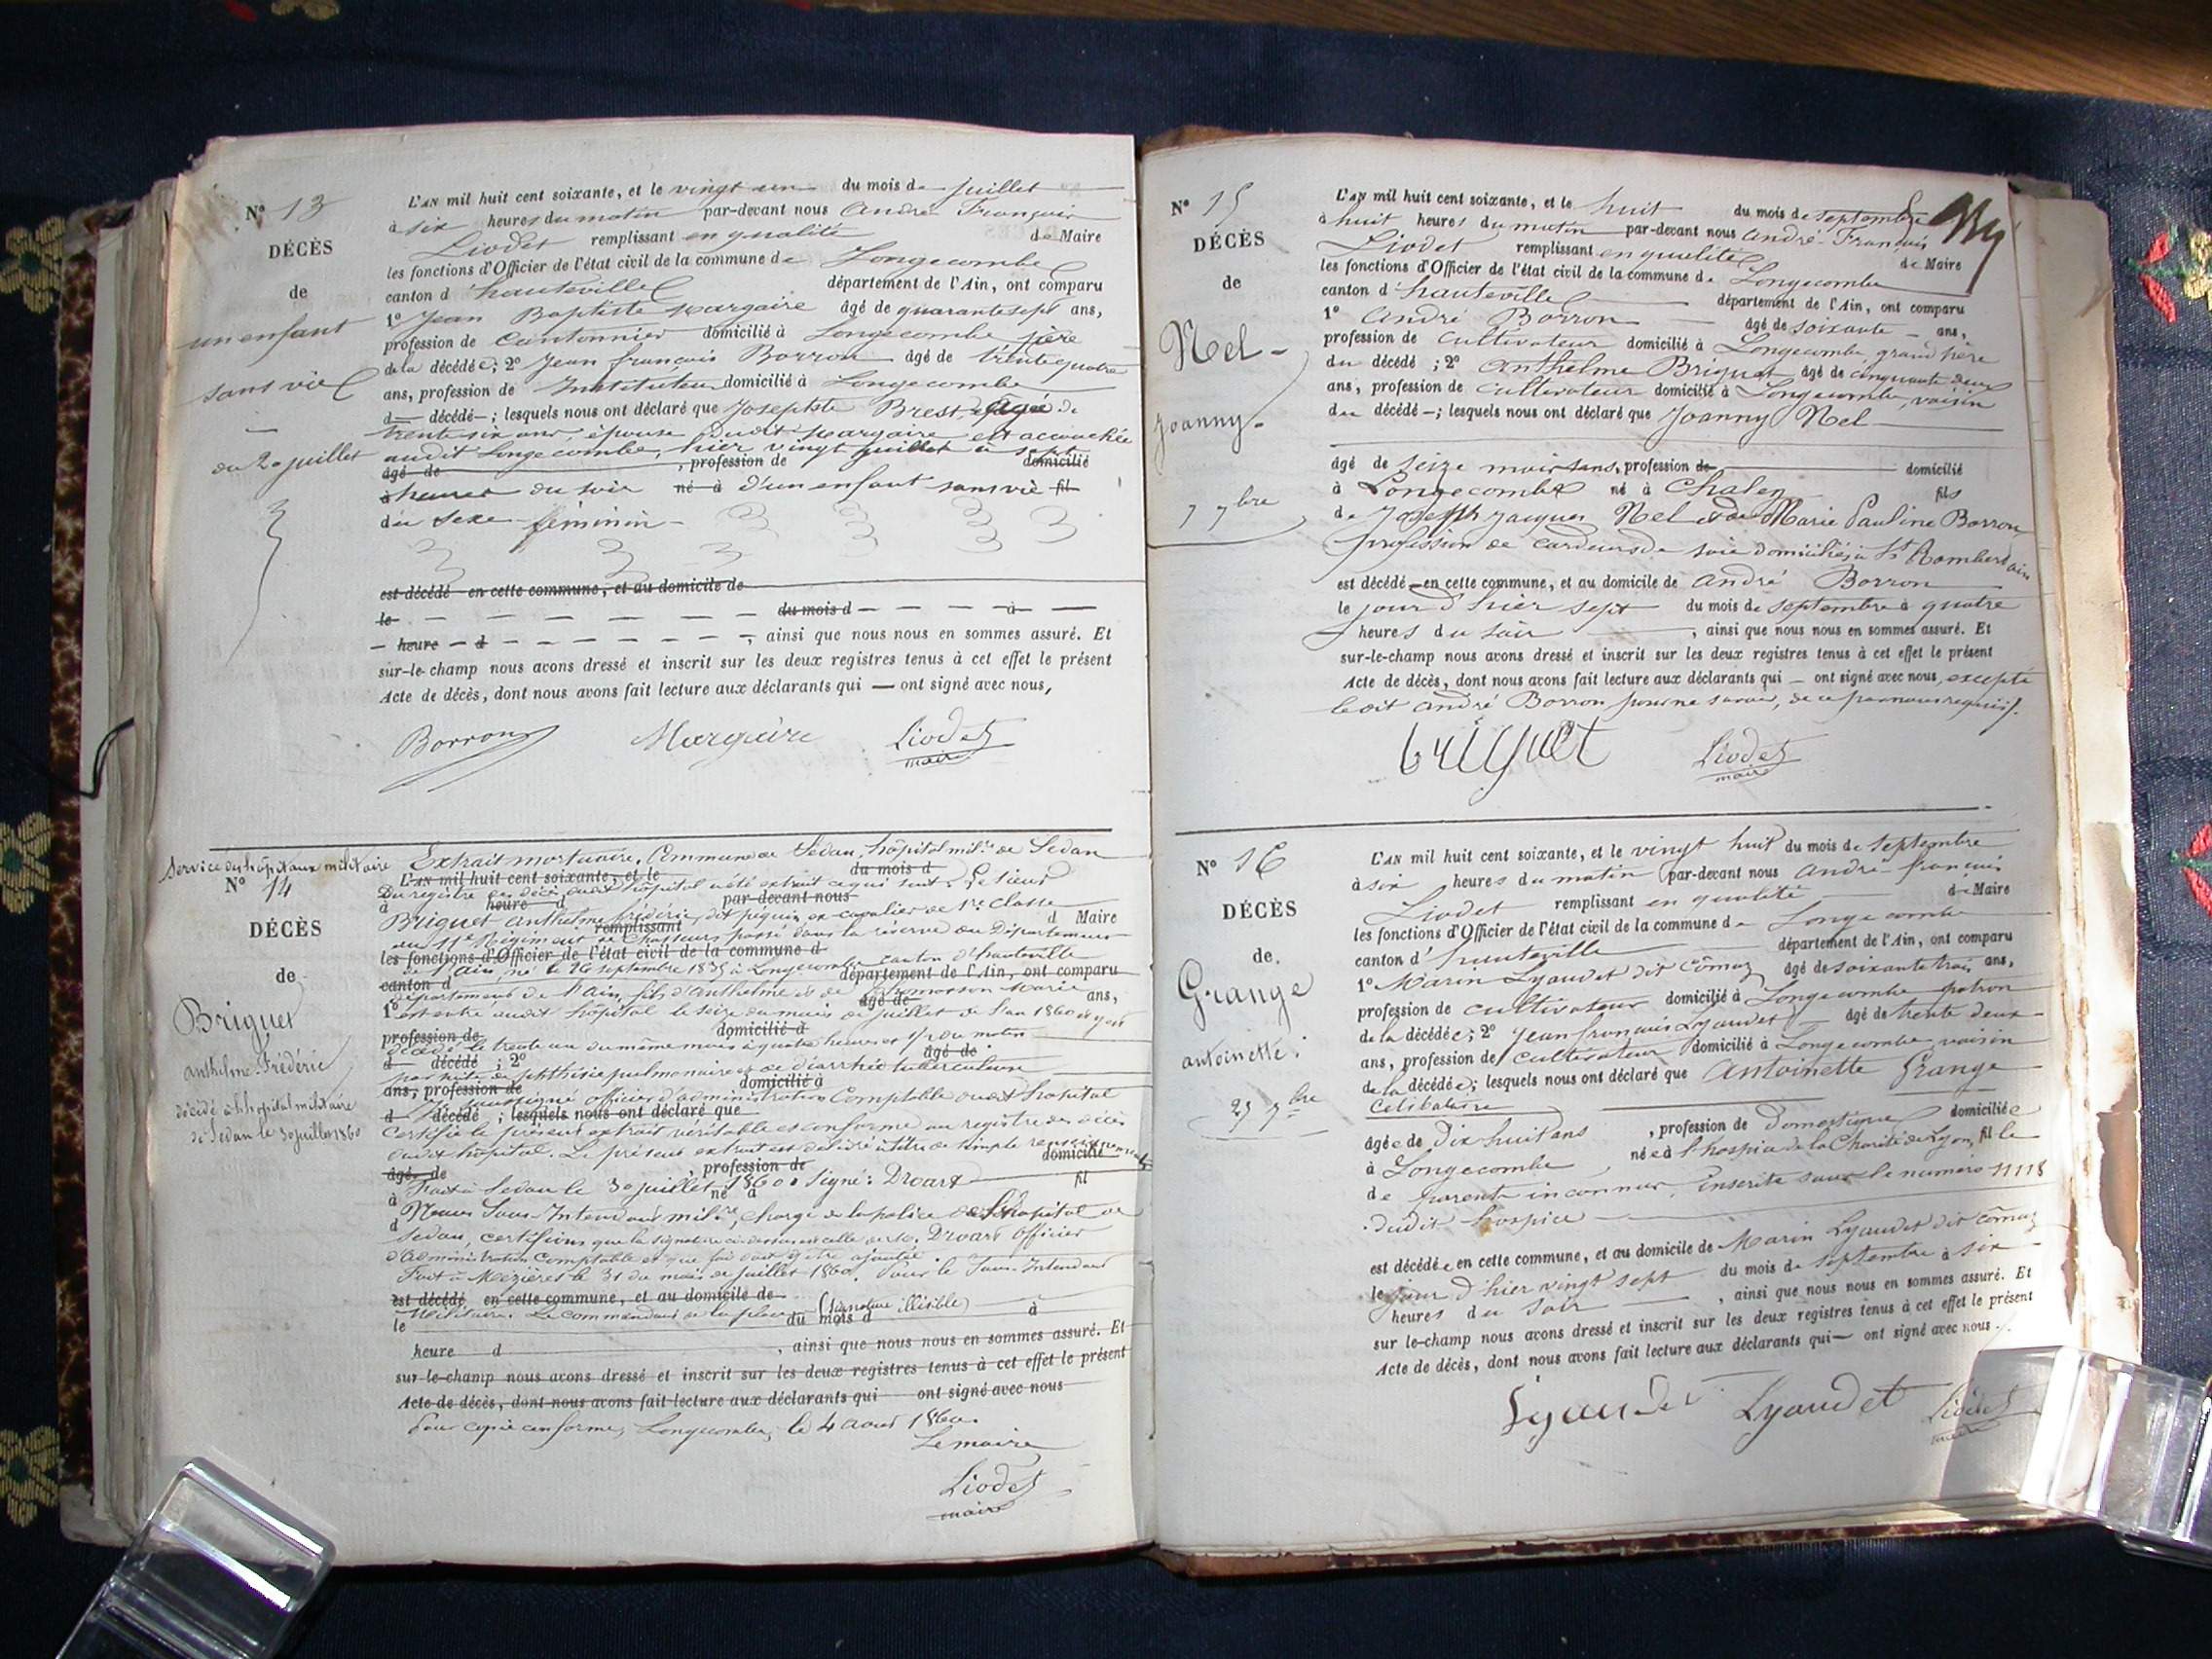 N° 13
DÉCÈS
de
un enfant
sans vie
du 20 juillet
L'AN mil huit cent soixante, et le vingt un du mois de juillet
à six heures du matin par-devant nous André François
Liodet remplissant en qualité de Maire
les fonctions d'Officier de l'état civil de la commune de Longecombe
canton d'hauteville département de l'Ain, ont comparu
1° Jean Baptiste Margaire âgé de quarante sept ans,
profession de Cantonnier domicilié à Longecombe père
de la décédée; 2° Jean françois Borron âgé de trente quatre
ans, profession de Instituteur domicilié à Longecombe
d décédé; lesquels nous ont déclaré que Josephte Brest, âgée de
trente six ans, épouse dudit Margaire est accouchée
audit Longecombe, hier vingt juillet à sept
âgé de , profession de domicilié
à heures du soir né à d'un enfant sans vie fil
du sexe féminin
est décédé en cette commune, et au domicile de
le du mois d à
heure d , ainsi que nous nous en sommes assuré. Et
sur-le-champ nous avons dressé et inscrit sur les deux registres tenus à cet effet le présent
Acte de décès, dont nous avons fait lecture aux déclarants qui — ont signé avec nous,
Borron Margaire Liodet
maire
Service des hôpitaux militaire
N° 14
DÉCÈS
de
Briguet
anthelme Frédéric
décédé à l'hopital militaire
de Sedan le 30 juillet 1860
Extrait mortuaire. Commune de Sedan, hôpital mil.re de Sedan
L'AN mil huit cent soixante, et le du mois d
Du registre des décès dudit hôpital a été extrait ce qui suit: Le sieur
à heure d par-devant nous
Briguet anthelme frédéric, dit péquin, ex cavalier de 1re Classe
remplissant d Maire
du 11e Régiment de Chasseurs passé dans la réserve du Département
les fonctions d'Officier de l'état civil de la commune d
de l'Ain, né le 26 septembre 1835 à Longecombe canton d'hauteville
canton d département de l'Ain, ont comparu
département de l'Ain, fils d'Anthelme et de Marie
1° âgé de ans,
est entré audit hôpital le seize du mois de juillet de l'an 1860 et y est
profession de domicilié à
décédé le trente un du même mois à quatre heures et 1/2 du matin
d décédé ; 2° âgé de
par suite de phthisie pulmonaire et de diarrhée tuberculeuse
ans, profession de domicilié à
Je soussigné officier d'administration Comptable dudit hôpital
d décédé ; lesquels nous ont déclaré que
Certifie le présent extrait véritable et conforme au registre des décès
dudit hôpital. Le présent extrait est délivré à titre de simple renseignement
âgé de , profession de domicilié
Fait à Sedan le 30 juillet 1860. Signé: Droart
à né à fil
Nous Sous-Intendant mil.re, chargé de la police de l'hôpital de
d
Sedan, certifions que la signature ci-dessus est celle de M. Droart officier
d'administration Comptable et que foi doit y être ajoutée.
Fait à Mézières le 31 du mois de juillet 1860. Pour le Sous-Intendant
est décédé en cette commune, et au domicile de
Militaire. Le commandant de la place (signature illisible)
le du mois d à
heure d , ainsi que nous nous en sommes assuré. Et
sur-le-champ nous avons dressé et inscrit sur les deux registres tenus à cet effet le présent
Acte de décès, dont nous avons fait lecture aux déclarants qui ont signé avec nous
Pour copie conforme, Longecombe, le 4 aout 1860.
Le maire
Liodet
maire
N° 15
DÉCÈS
de
Nel
Joanny
7 7bre
L'AN mil huit cent soixante, et le huit du mois de septembre
à huit heures du matin par-devant nous André-François
Liodet remplissant en qualité de Maire
les fonctions d'Officier de l'état civil de la commune de Longecombe
canton d'hauteville département de l'Ain, ont comparu
1° André Borron âgé de soixante ans,
profession de Cultivateur domicilié à Longecombe, grand père
du décédé ; 2° Anthelme Briguet âgé de cinquante deux
ans, profession de Cultivateur domicilié à Longecombe, voisin
du décédé —; lesquels nous ont déclaré que Joanny Nel
âgé de seize mois ans, profession de domicilié
à Longecombe né à Chaley fils
de Joseph Jacques Nel et de Marie Pauline Borron
profession de cardeurs de soie domiciliés à St Rambert ain
est décédé en cette commune, et au domicile de André Borron
le jour d'hier sept du mois de septembre à quatre
heures du soir , ainsi que nous nous en sommes assuré. Et
sur-le-champ nous avons dressé et inscrit sur les deux registres tenus à cet effet le présent
Acte de décès, dont nous avons fait lecture aux déclarants qui — ont signé avec nous, excepté
ledit André Borron pour ne savoir, de ce par nous requis.
briguet Liodet
maire
N° 16
DÉCÈS
de
Grange
antoinette
27 7bre
L'AN mil huit cent soixante, et le vingt huit du mois de septembre
à six heures du matin par-devant nous André-françois
Liodet remplissant en qualité de Maire
les fonctions d'Officier de l'état civil de la commune de Longecombe
canton d'hauteville département de l'Ain, ont comparu
1° Marin Lyaudet dit Cômaz âgé de soixante trois ans,
profession de cultivateur domicilié à Longecombe patron
de la décédée; 2° Jean françois Lyaudet âgé de trente deux
ans, profession de cultivateur domicilié à Longecombe, voisin
de la décédée; lesquels nous ont déclaré que Antoinette Grange
Célibataire
âgée de Dix huit ans , profession de Domestique domiciliée
à Longecombe née à l'hospice de la Charité de Lyon, fille
de parents inconnus. Inscrite sous le numéro 11118
dudit hospice
est décédée en cette commune, et au domicile de Marin Lyaudet dit Cômaz
le jour d'hier vingt sept du mois de septembre à six
heures du soir , ainsi que nous nous en sommes assuré. Et
sur le-champ nous avons dressé et inscrit sur les deux registres tenus à cet effet le présent
Acte de décès, dont nous avons fait lecture aux déclarants qui — ont signé avec nous.
Lyaudet Lyaudet Liodet
maire